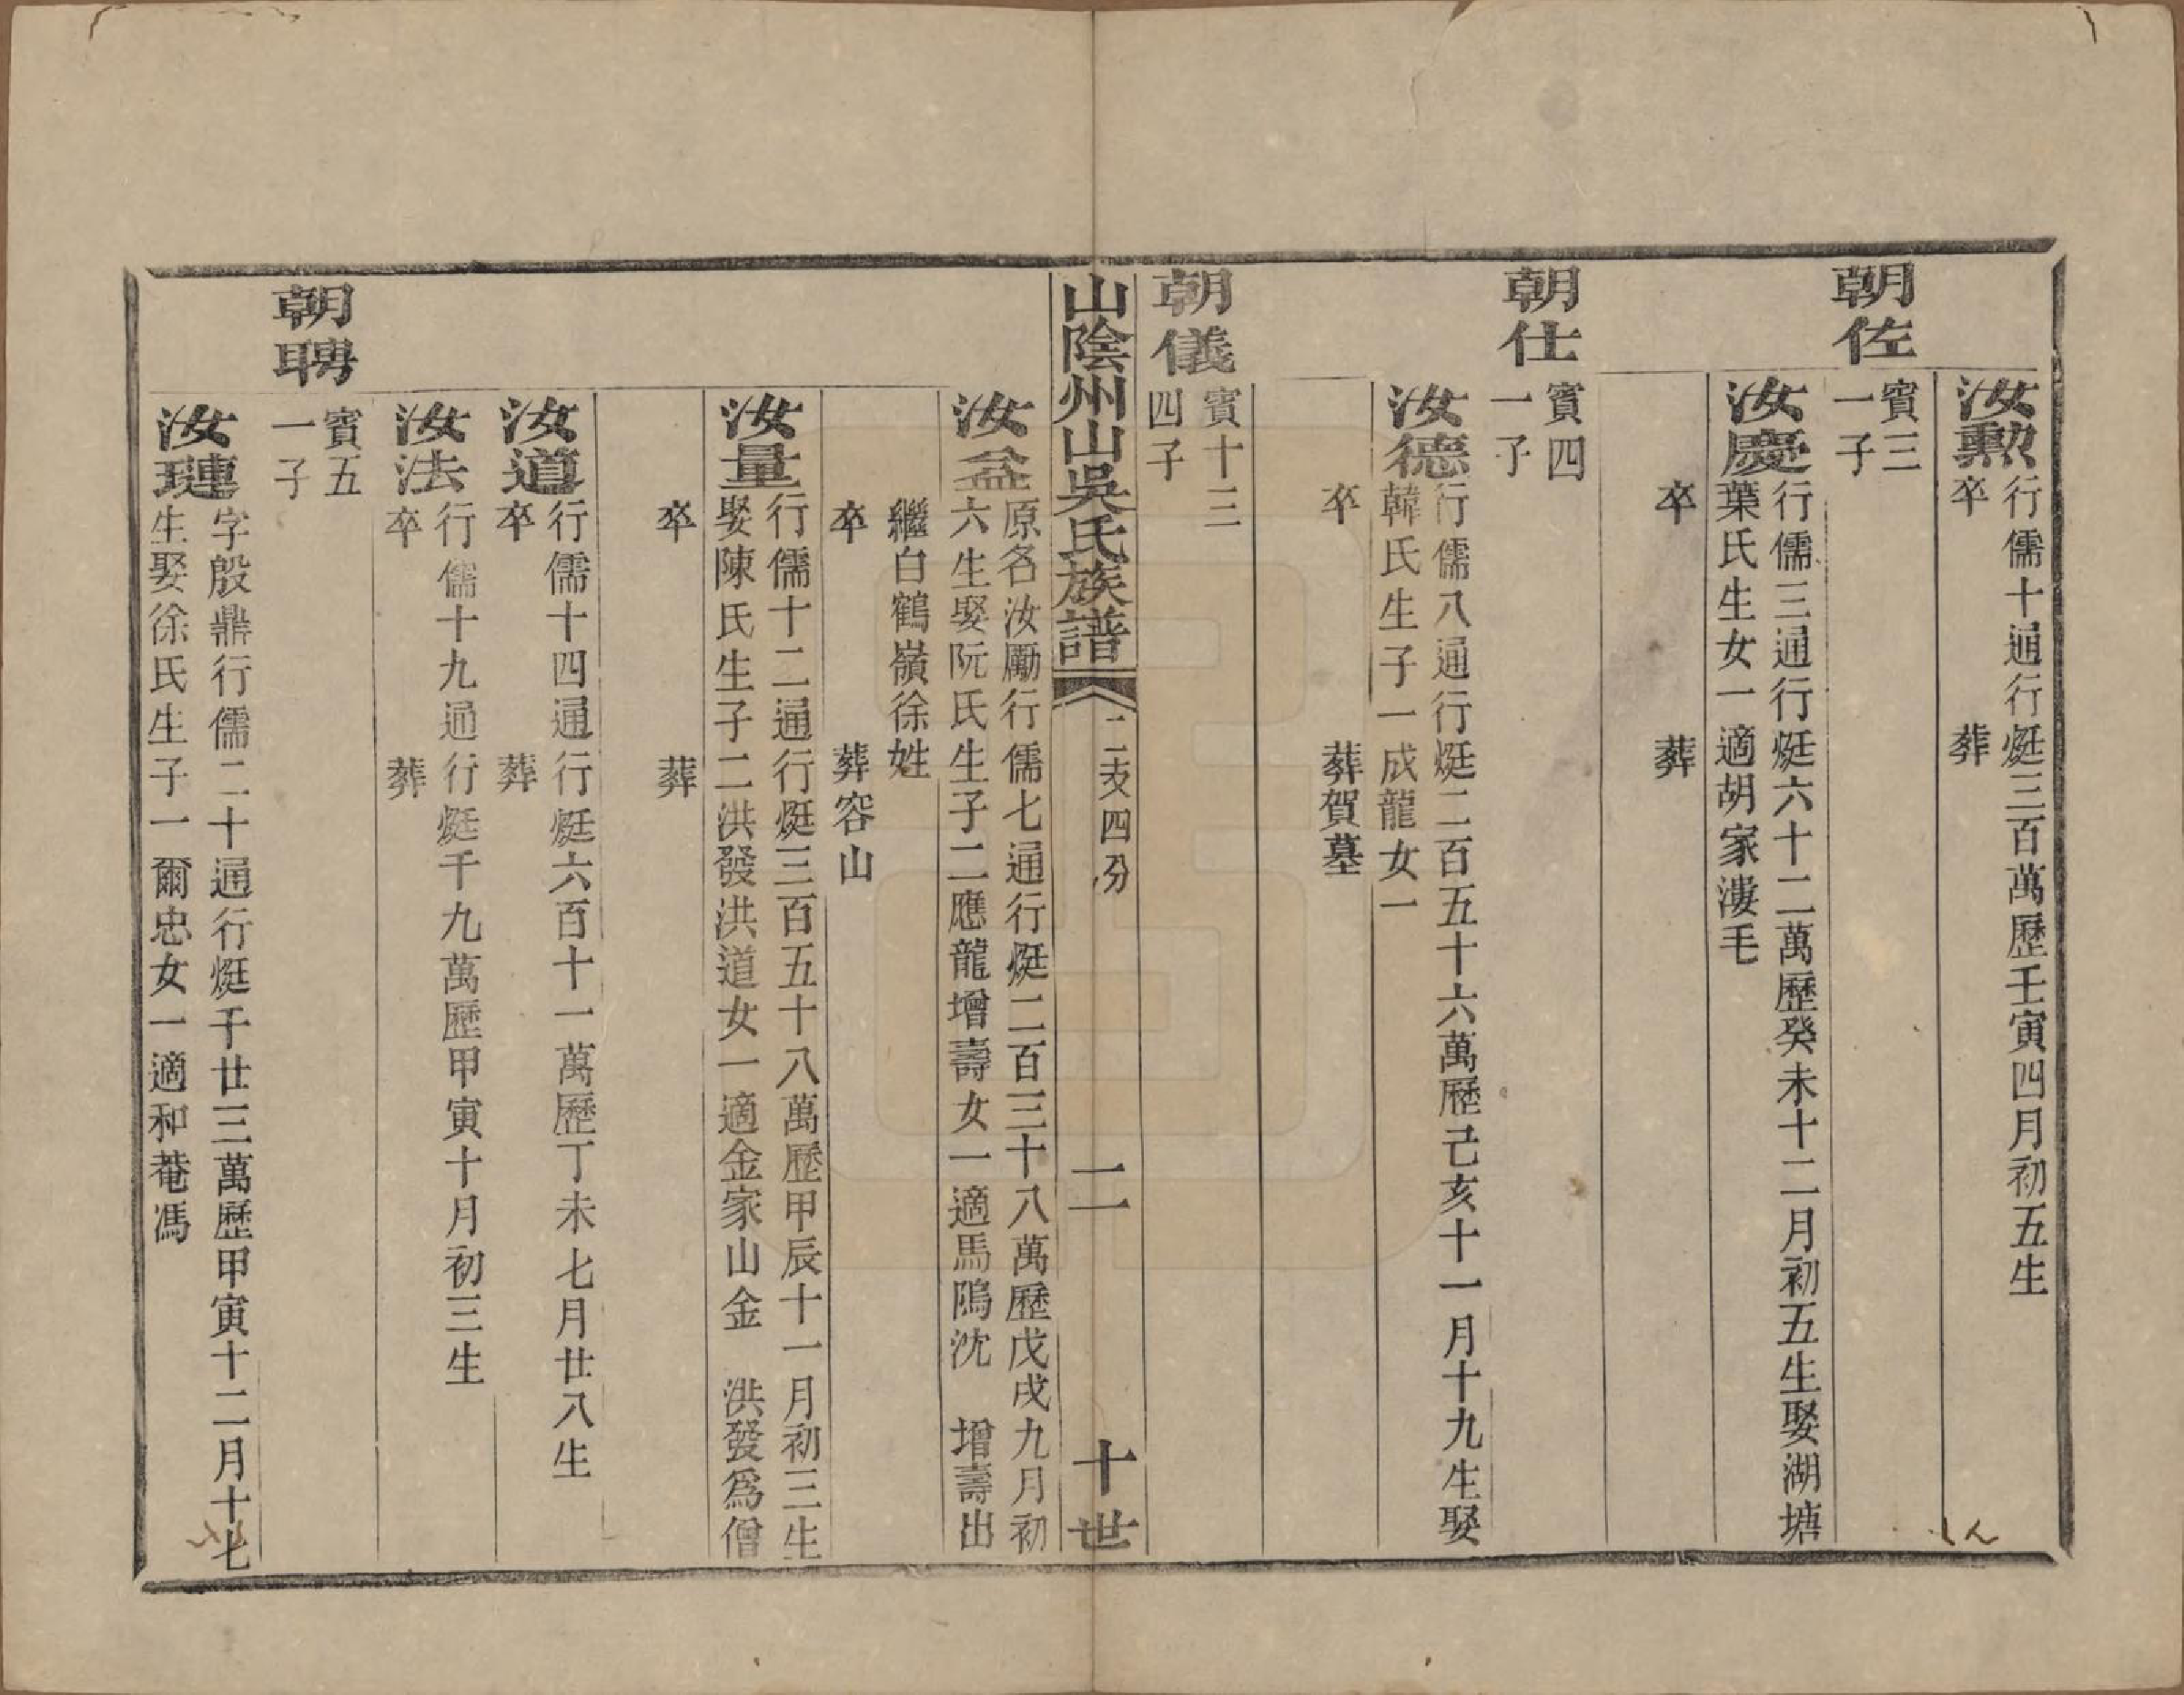 汝勲
行儒十通行烶三百萬歷壬寅四月初五生
卒　葬
朝佐
賓三
一子
汝慶
行儒三通行烶六十二萬歷癸未十二月初五生娶湖塘
葉氏生女一適胡家漊毛
卒　葬
朝仕
賓四
一子
汝德
行儒八通行烶二百五十六萬歷己亥十一月十九生娶
韓氏生子一成龍女一
卒　葬賀墓
朝儀
賓十三
四子
山陰州山吳氏族譜
二支四分
二
十世
汝益
原名汝勵行儒七通行烶二百三十八萬歷戊戌九月初
六生娶阮氏生子二應龍增壽女一適馬隖沈　增壽出
繼白鶴嶺徐姓
卒　葬容山
汝量
行儒十二通行烶三百五十八萬歷甲辰十一月初三生
娶陳氏生子二洪發洪道女一適金家山金　洪發爲僧
卒　葬
汝道
行儒十四通行烶六百十一萬歷丁未七月廿八生
卒　葬
汝法
行儒十九通行烶千九萬歷甲寅十月初三生
卒　葬
朝聘
賓五
一子
汝璉
字殷鼎行儒二十通行烶千廿三萬歷甲寅十二月十七
生娶徐氏生子一爾忠女一適和菴馮